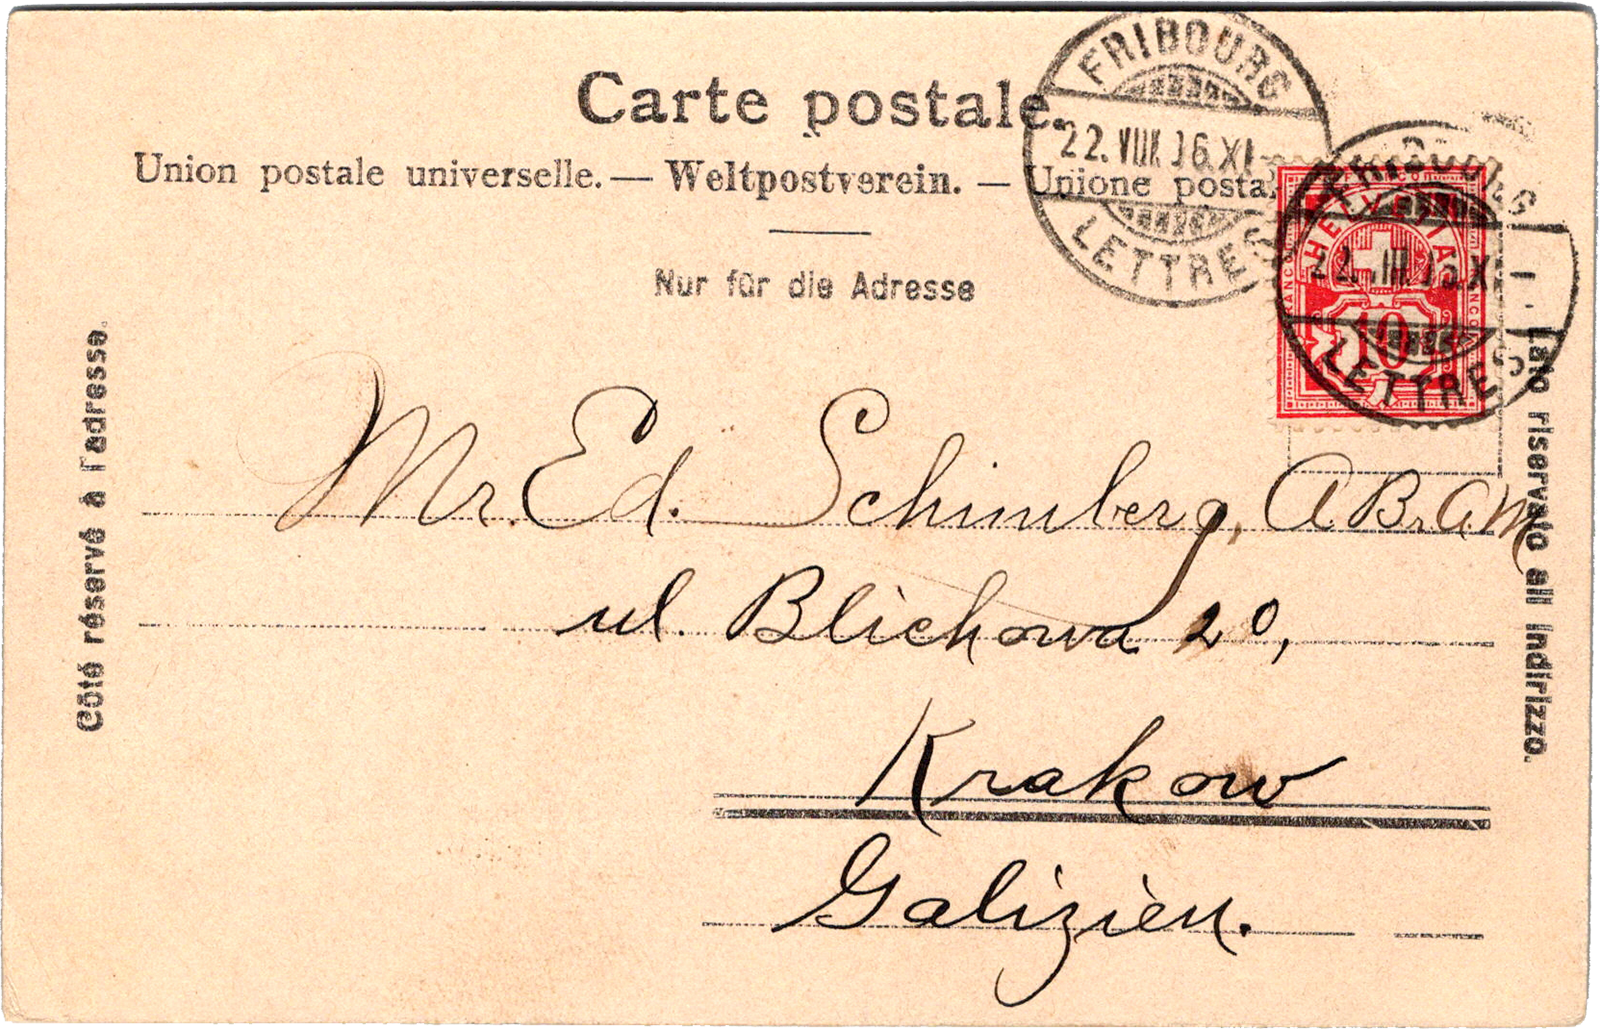 Carte postale.
Union postale universelle. — Weltpostverein. — Unione posta
Nur für die Adresse
Côté réservé à l'adresse.
Lato riservato all indirizzo.
FRIBOURG
22. VIII. 06. XI-
LETTRES
FRIBOURG
LETTRES
FRANCO
HELVETIA
10
Mr. Ed. Schimberg, A. Br. A. M
ul. Blichowa 20,
Krakow
Galizien.